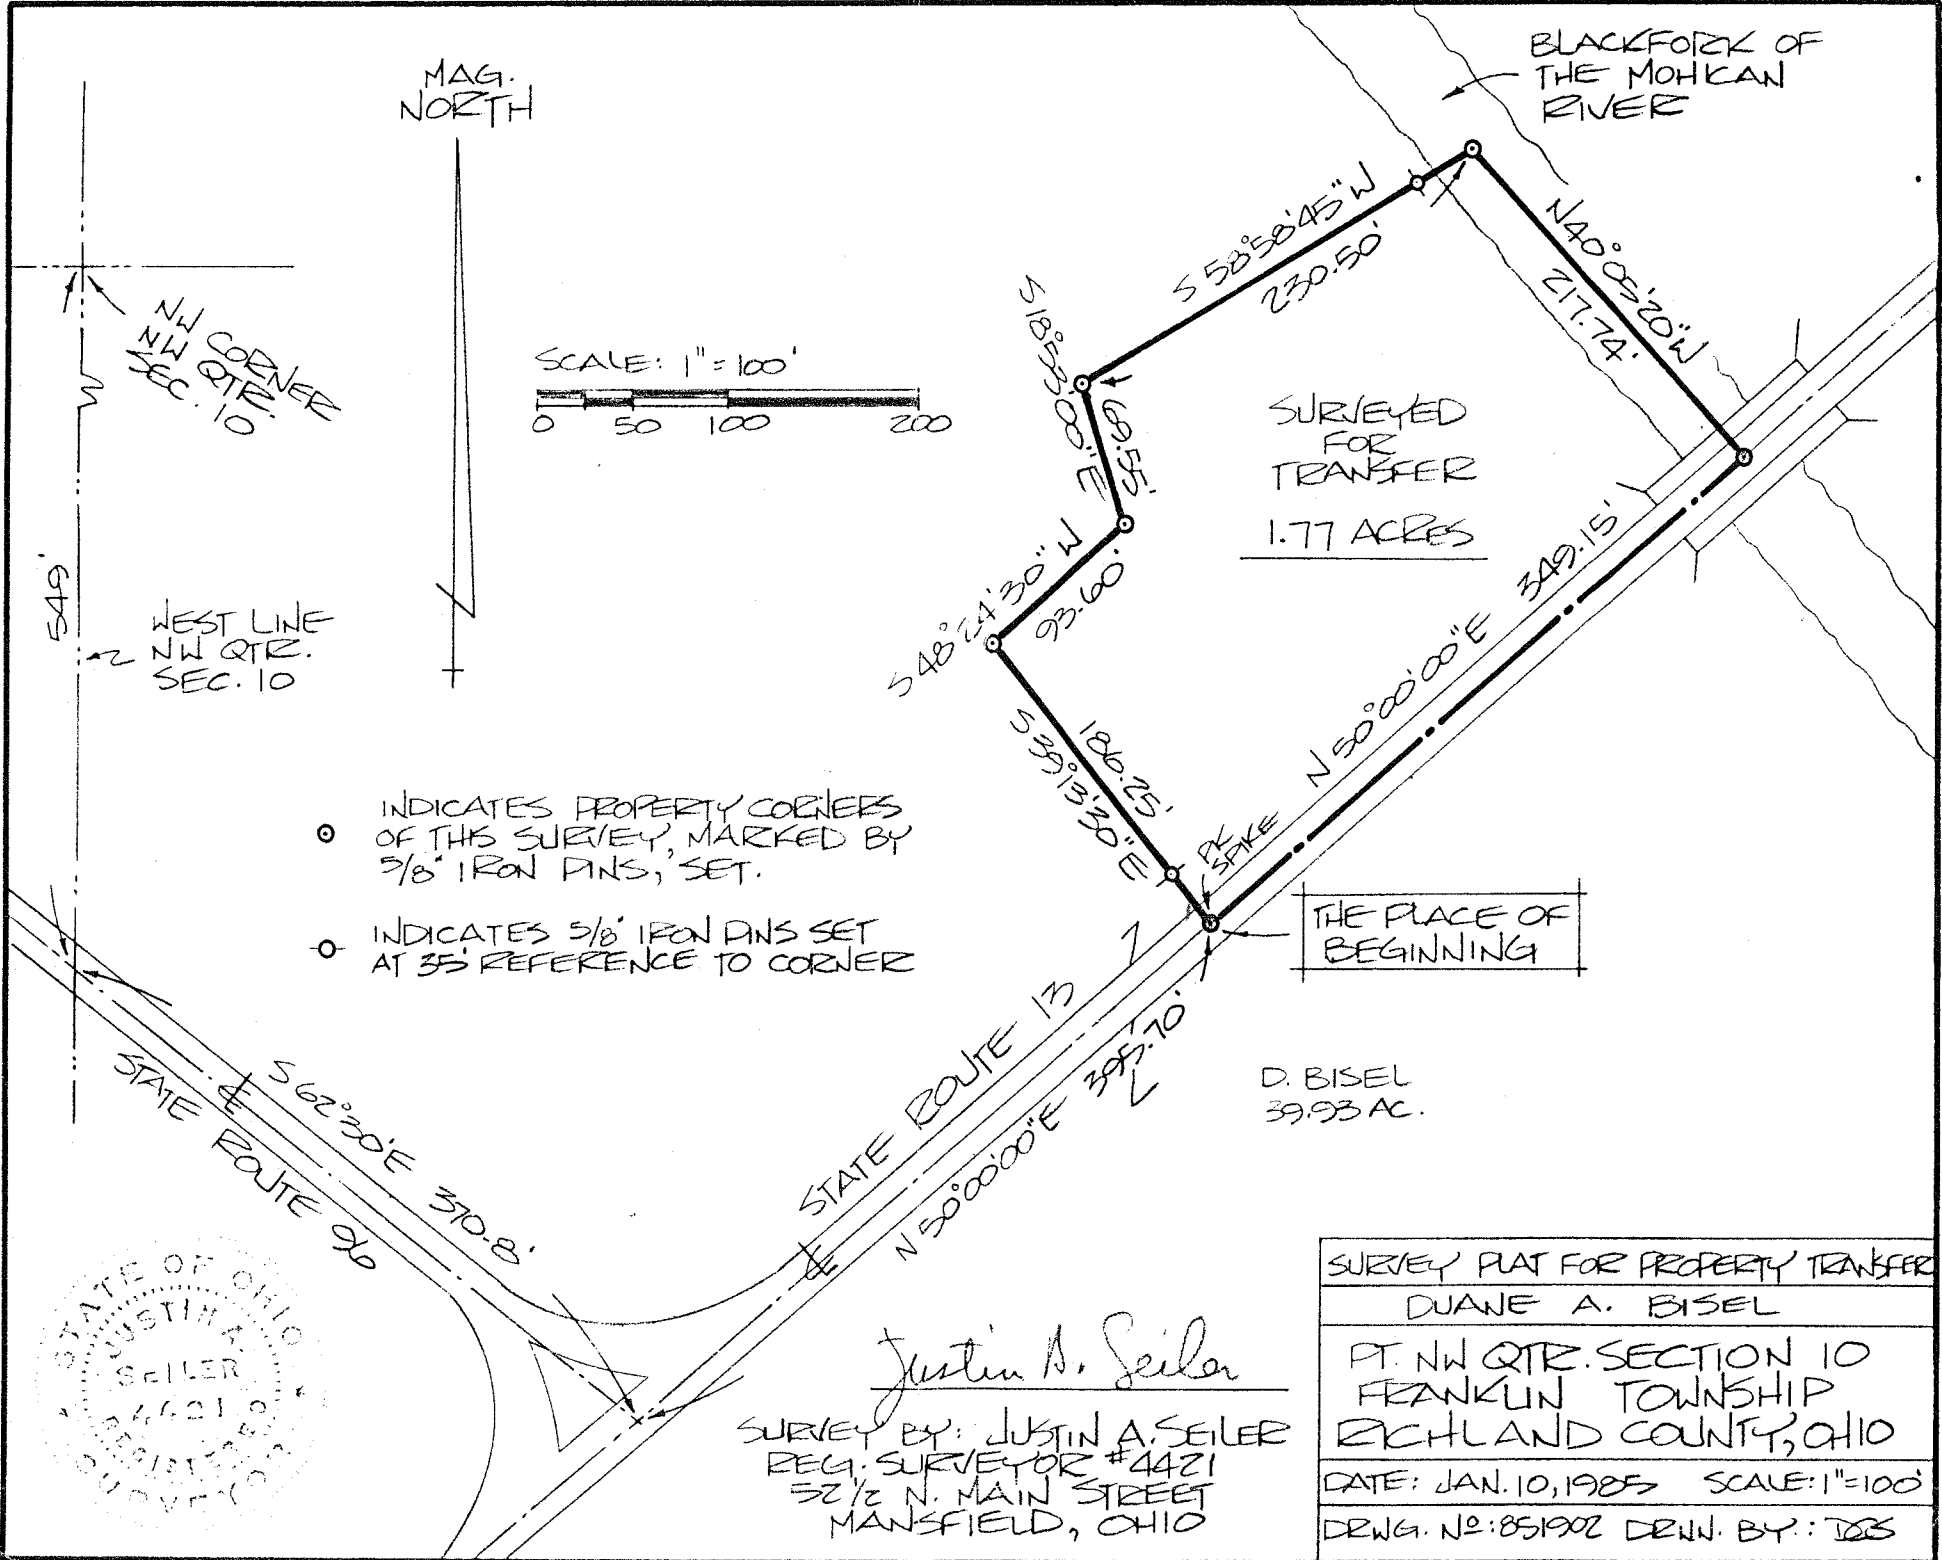 MAG.
NORTH
BLACKFORK OF
THE MOHICAN
RIVER
NW CORNER
NW QTR.
SEC. 10
SCALE: 1"=100'
0 50 100 200
S 58°58'45" W
230.50'
N 40°05'20" W
217.74'
S 18°53'00" E
69.55'
SURVEYED
FOR
TRANSFER
1.77 ACRES
S 48°24'30" W
93.60'
549'
WEST LINE
NW QTR.
SEC. 10
186.25'
S 39°13'30" E
N 50°00'00" E 349.15'
PK
SPIKE
INDICATES PROPERTY CORNERS
OF THIS SURVEY, MARKED BY
5/8" IRON PINS, SET.
INDICATES 5/8" IRON PINS SET
AT 35' REFERENCE TO CORNER
THE PLACE OF
BEGINNING
STATE ROUTE 13
N 50°00'00" E 395.70'
D. BISEL
39.93 AC.
S 62°30' E 370.8'
STATE ROUTE 96
STATE OF OHIO
JUSTIN A.
SEILER
4421
REGISTERED
SURVEYOR
Justin A. Seiler
SURVEY BY: JUSTIN A. SEILER
REG. SURVEYOR #4421
52 1/2 N. MAIN STREET
MANSFIELD, OHIO
SURVEY PLAT FOR PROPERTY TRANSFER
DUANE A. BISEL
PT. NW QTR. SECTION 10
FRANKLIN TOWNSHIP
RICHLAND COUNTY, OHIO
DATE: JAN. 10, 1985 SCALE: 1"=100'
DRWG. Nº: 851902 DRWN. BY.: